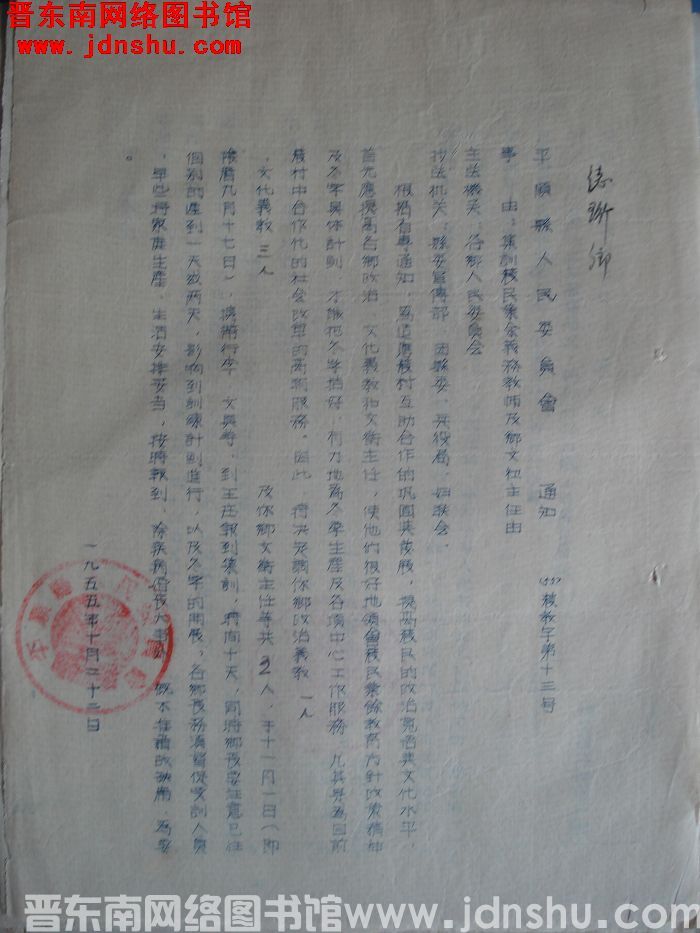 晋东南网络图书馆
www.jdnshu.com
平順縣人民委員會 通知 (55)教字第十三号
事由：集訓農民業余義務教師及鄉文衛主任由
主送機关：各鄉人民委員会
抄送机关：縣委宣傳部 团縣委、兵役局、妇联会、
根据省專通知，為適應農村互助合作的巩固與發展，提高農民的政治覚悟與文化水平，
首先應提高各鄉政治 文化義教和文衛主任，使他們很好地領會農民業餘教育方針政策精神
及冬学具体計划 才能把冬学搞好，有力地為冬季生產及各項中心工作服務 尤其是為目前
農村中合作化的社会改革的高潮服務。因此，特决定調你鄉政治義教 一人
，文化義教 三人 及你鄉文衛主任等共 人，于十一月一日（即
陰曆九月十七日），携帶行李 文具等，到王庄報到集訓，時间十天，同時鄉 要注意已往
個別的遲到一天或两天，影响到訓練計划進行，以及冬学的開展，各鄉 務須督促受訓人員
，早些將家庭生產、生活安排妥当，按時報到，除疾病 大事外 概不准 缺席 為要
。
一九五五年十月二十二日
晋东南网络图书馆www.jdnshu.com